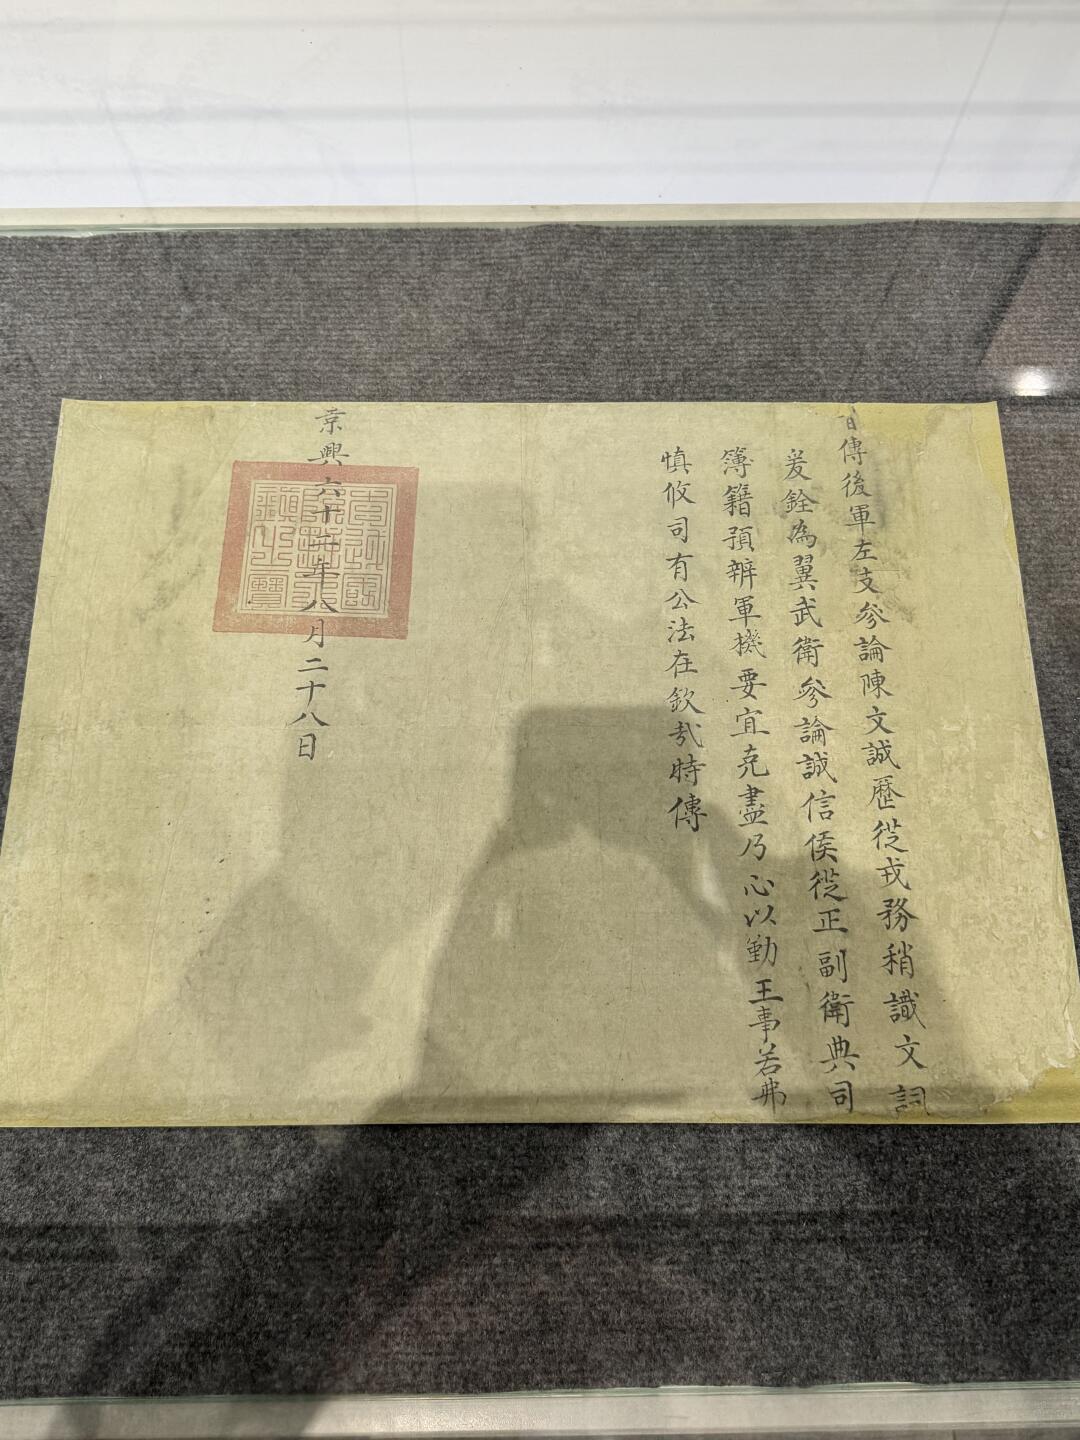 旨傳後軍左支參論陳文誠歷從戎務稍識文詞
爰銓為翼武衛參論誠信侯從正副衛典司
簿籍預辨軍機要宜克盡乃心以勤王事若弗
慎攸司有公法在欽哉特傳
景興六十二年八月二十八日
大越國阮主永鎮之寶